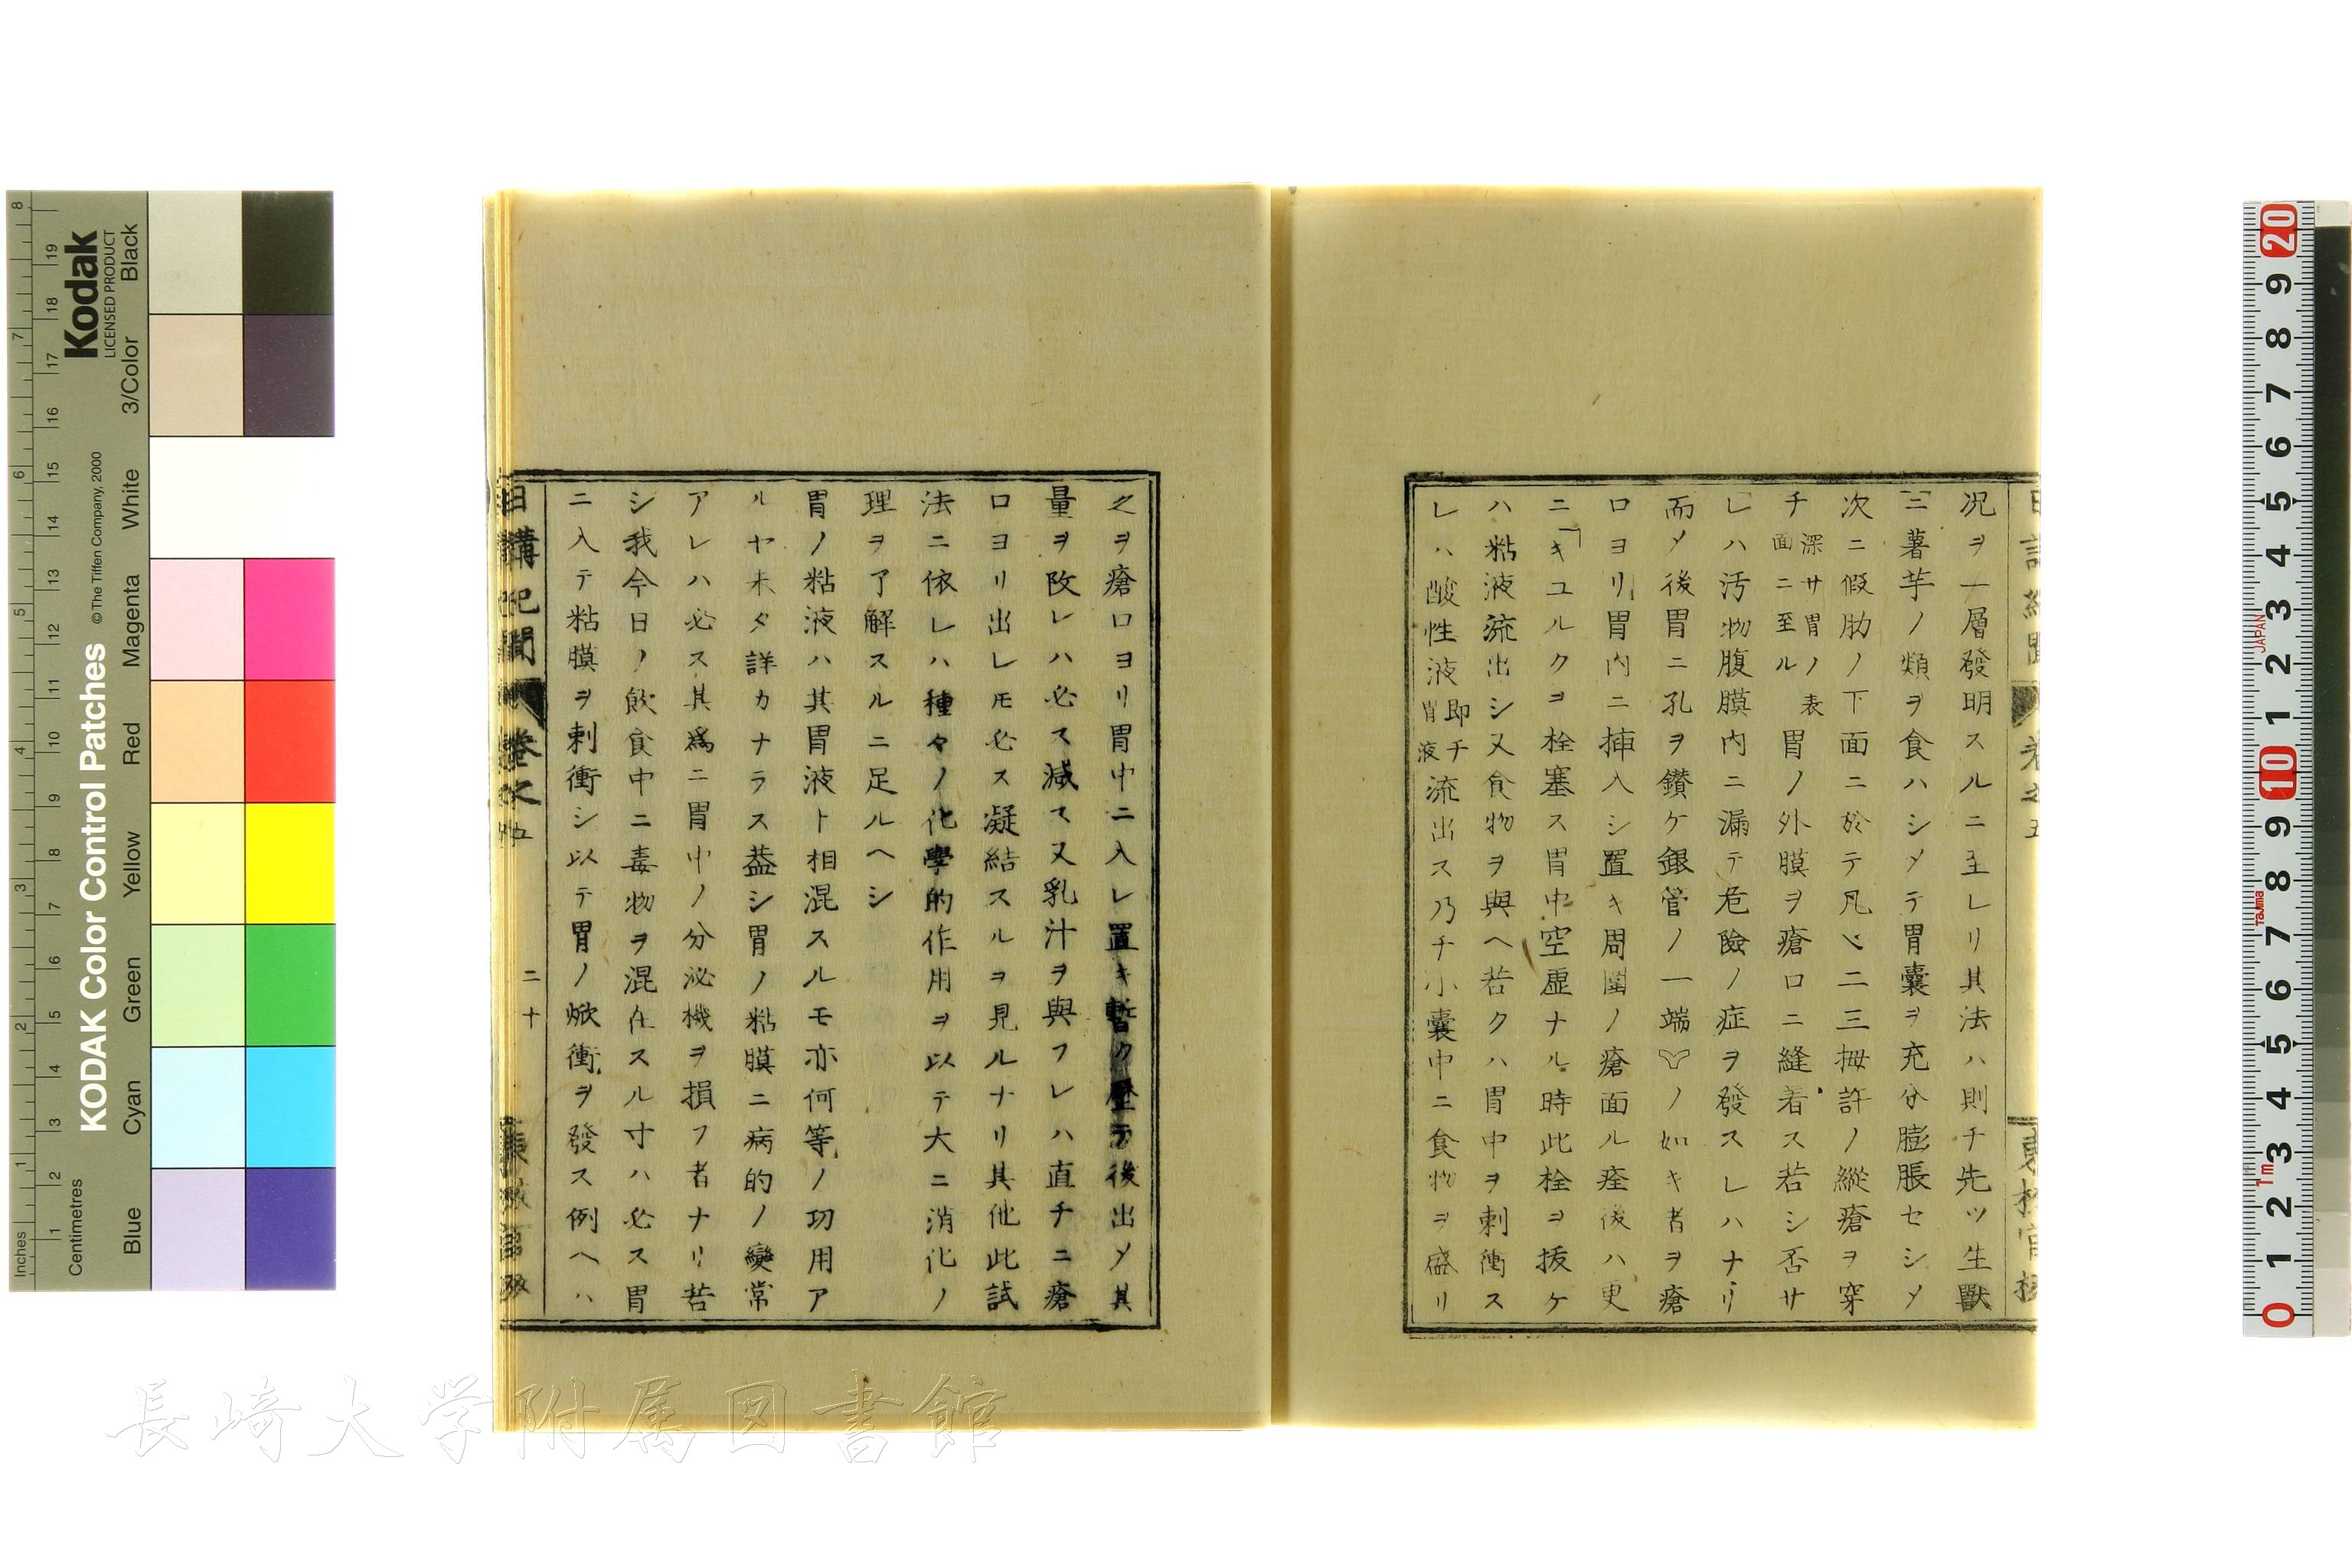 况ヲ一層發明スルニ至レリ其法ハ則チ先ツ生獸
ニ薯芋ノ類ヲ食ハシメテ胃囊ヲ充分膨脹セシメ
次ニ假肋ノ下面ニ於テ凡ソ二三拇許ノ縱瘡ヲ穿
チ深サ胃ノ表面ニ至ル胃ノ外膜ヲ瘡口ニ縫着ス若シ否サ
レハ汚物腹膜内ニ漏テ危險ノ症ヲ發スレハナリ
而メ後胃ニ孔ヲ鑚ケ銀管ノ一端ノ如キ者ヲ瘡
口ヨリ胃内ニ挿入シ置キ周圍ノ瘡面ル痊後ハ更
ニキユルクヨ栓塞ス胃中空虛ナル時此栓ヲ拔ケ
ハ粘液流出シ又食物ヲ與ヘ若クハ胃中ヲ刺衝ス
レハ酸性液即チ胃液流出ス乃チ小囊中ニ食物ヲ盛リ
之ヲ瘡口ヨリ胃中ニ入レ置キ暫ク歷テ後出メ其
量ヲ攺レハ必ス減ス又乳汁ヲ與フレハ直チニ瘡
口ヨリ出レモ必ス凝結スルヲ見ルナリ其他此試
法ニ依レハ種々ノ化學的作用ヲ以テ大ニ消化ノ
理ヲ了解スルニ足ルヘシ
胃ノ粘液ハ其胃液ト相混スルモ亦何等ノ功用ア
ルヤ未タ詳カナラス葢シ胃ノ粘膜ニ病的ノ變常
アレハ必ス其爲ニ胃中ノ分泌機ヲ損フ者ナリ若
シ我今日ノ飮食中ニ毒物ヲ混在スル寸ハ必ス胃
ニ入テ粘膜ヲ刺衝シ以テ胃ノ焮衝ヲ發ス例ヘハ
日講紀聞 卷之五
二十
長崎大学附属図書館
Kodak
LICENSED PRODUCT
KODAK Color Control Patches
© The Tiffen Company, 2000
Inches
Centimetres
Blue
Cyan
Green
Yellow
Red
Magenta
White
3/Color
Black
1 2 3 4 5 6 7 8
1 2 3 4 5 6 7 8 9 10 11 12 13 14 15 16 17 18 19
0 1 2 3 4 5 6 7 8 9 10 1 2 3 4 5 6 7 8 9 20
1m
Tajima
JAPAN